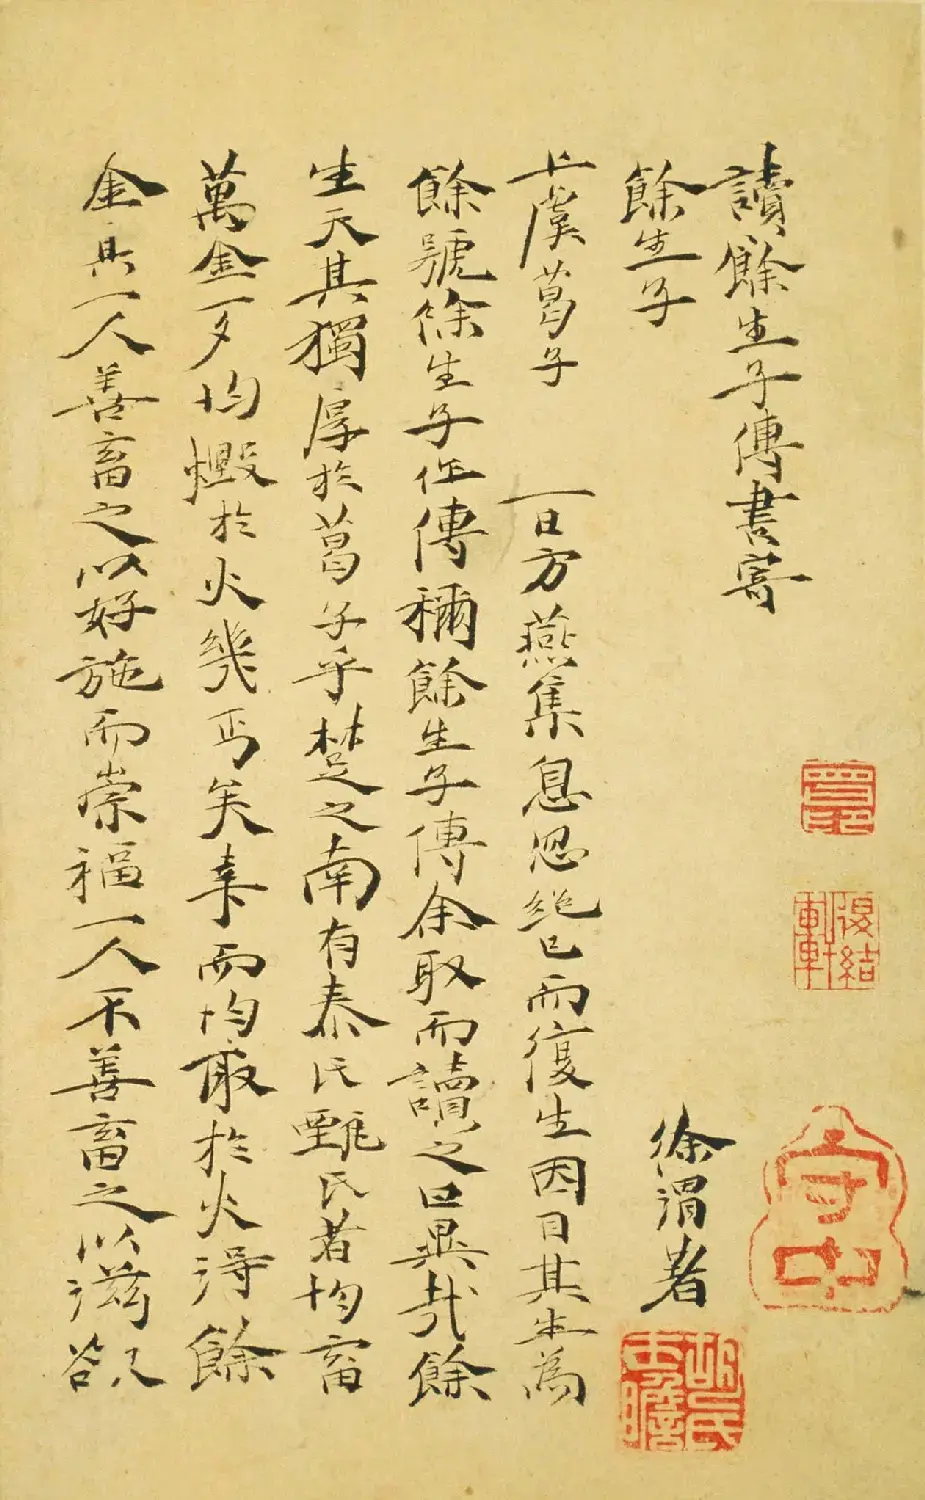 讀餘生子傳書寄
餘生子
徐渭著
上虞葛子 一日方燕集息忽絕已而復生因曰其生為
餘號餘生子作傳稱餘生子傳余取而讀之曰異哉餘
生天其獨厚於葛子乎楚之南有秦氏甄氏者均畜
萬金一夕均燬於火幾丐矣幸而均取於火得餘
金焉一人善畜之以好施而崇福一人不善畜之以滋欲
守中